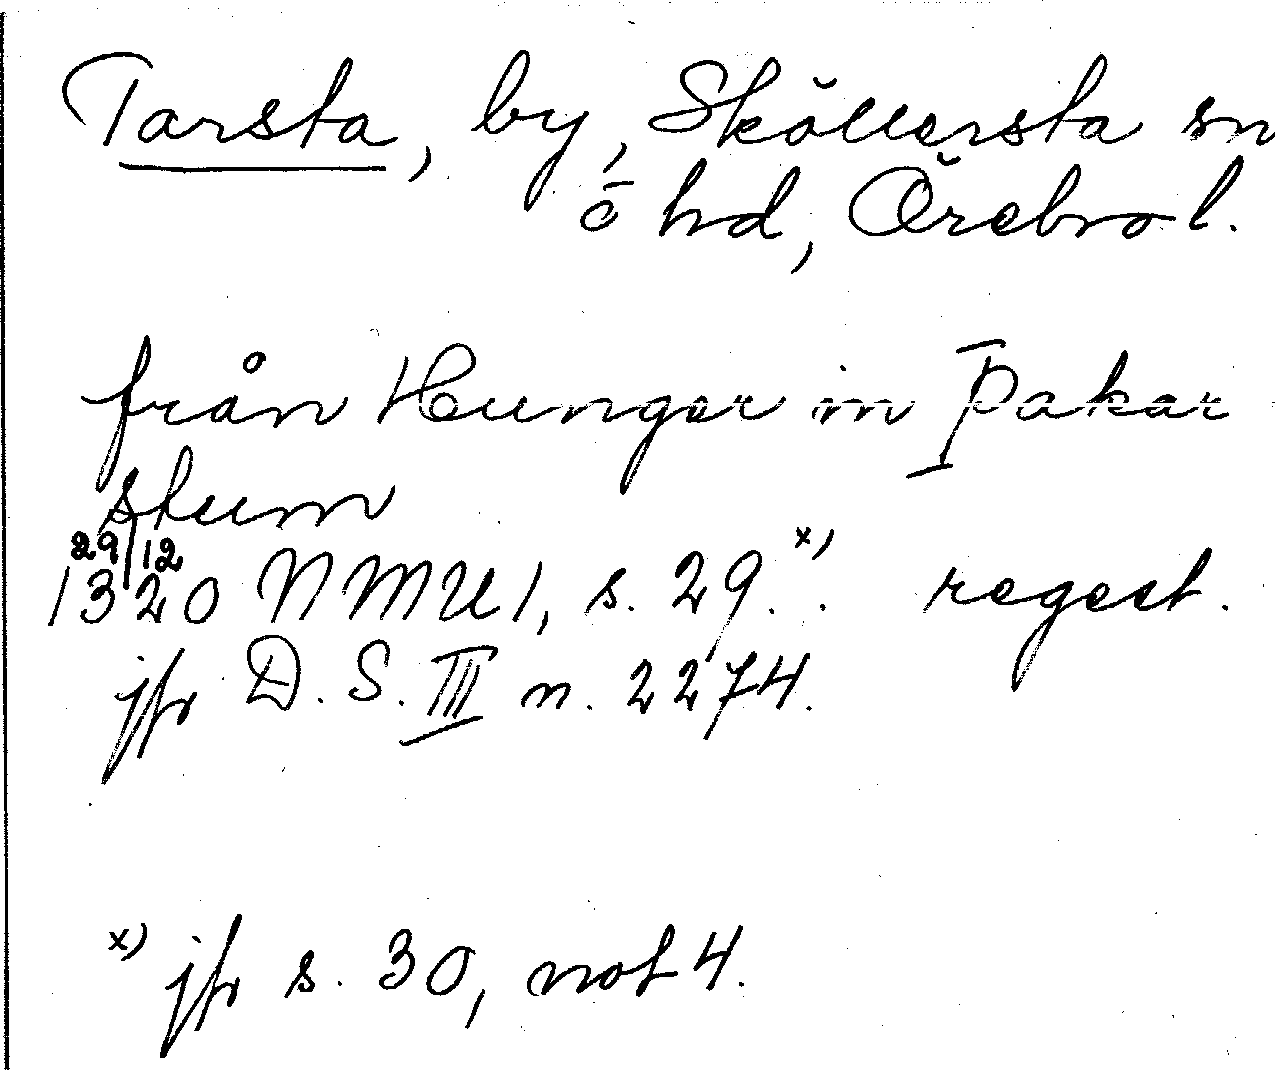 Tarsta, by, Sköllersta sn
o hd, Örebro l.
från Hunger in Þakar
stum
29/12
1320 NMU 1, s. 29.x) regest.
jfr D. S. III n. 2274.
x) jfr s. 30, not 4.